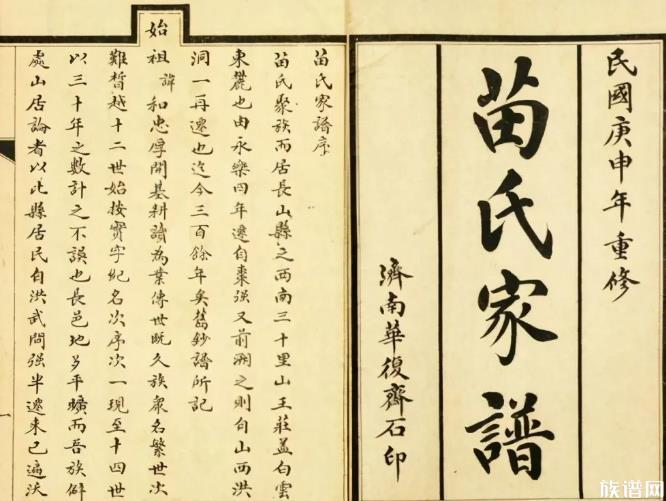 民國庚申年重修
苗氏家譜
濟南華復齊石印
苗氏家譜序
苗氏聚族而居長山縣之西南三十里山王莊蓋白雲
東麓也由永樂四年遷自棗强又前溯之則自山西洪
洞一再遷也迄今三百餘年矣舊鈔譜所記
始祖諱和忠厚開基耕讀為業傳世既久族衆名繁世次
難晳越十二世始按實字紀名次序次一現至十四世
以三十年之數計之不誤也長邑地多平曠而吾族僻
處山居論者以此縣居民自洪武間强半遷來已遍沃
一
族谱网